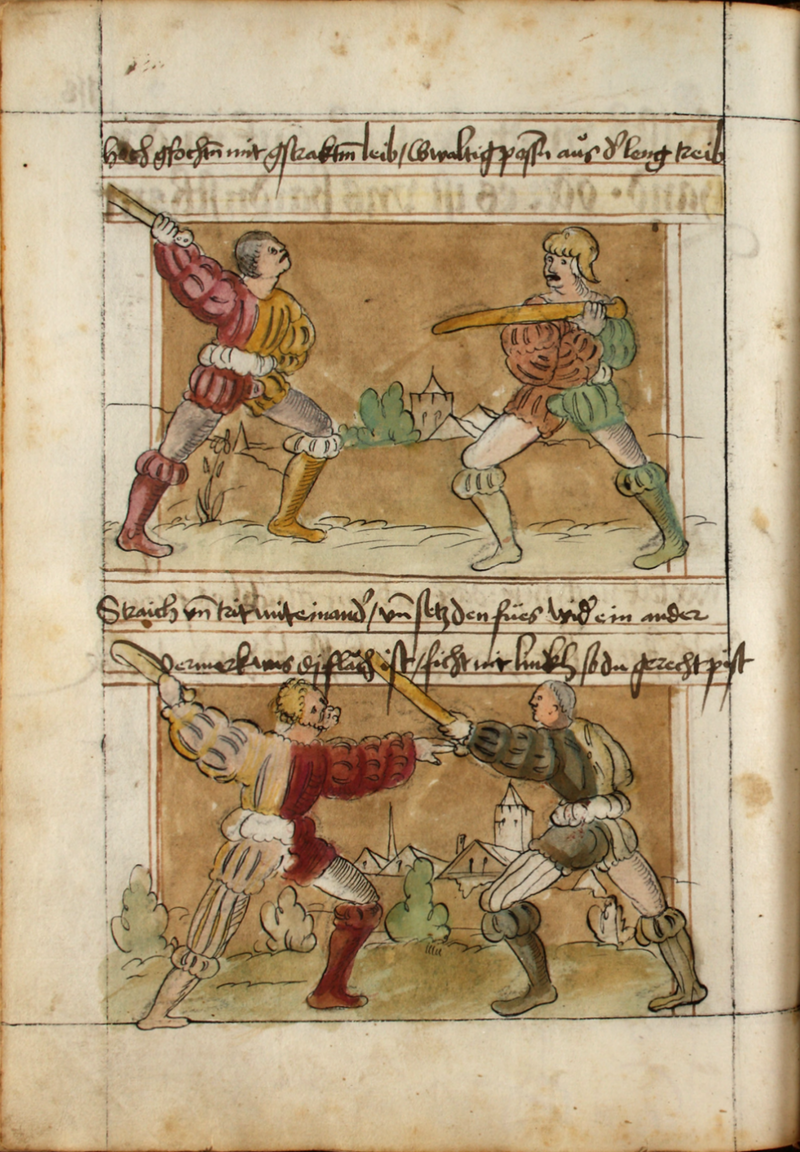 Hoch gfochtn̄ mit gstraktm̄ leib / Gwaltig possn̄ aus d' leng treib
Straich vn̄ trit mit einand' / vn̄ setz den fües wid' ein ander
Vermerk was di flach ist / ficht mit linckh so du gerecht pist